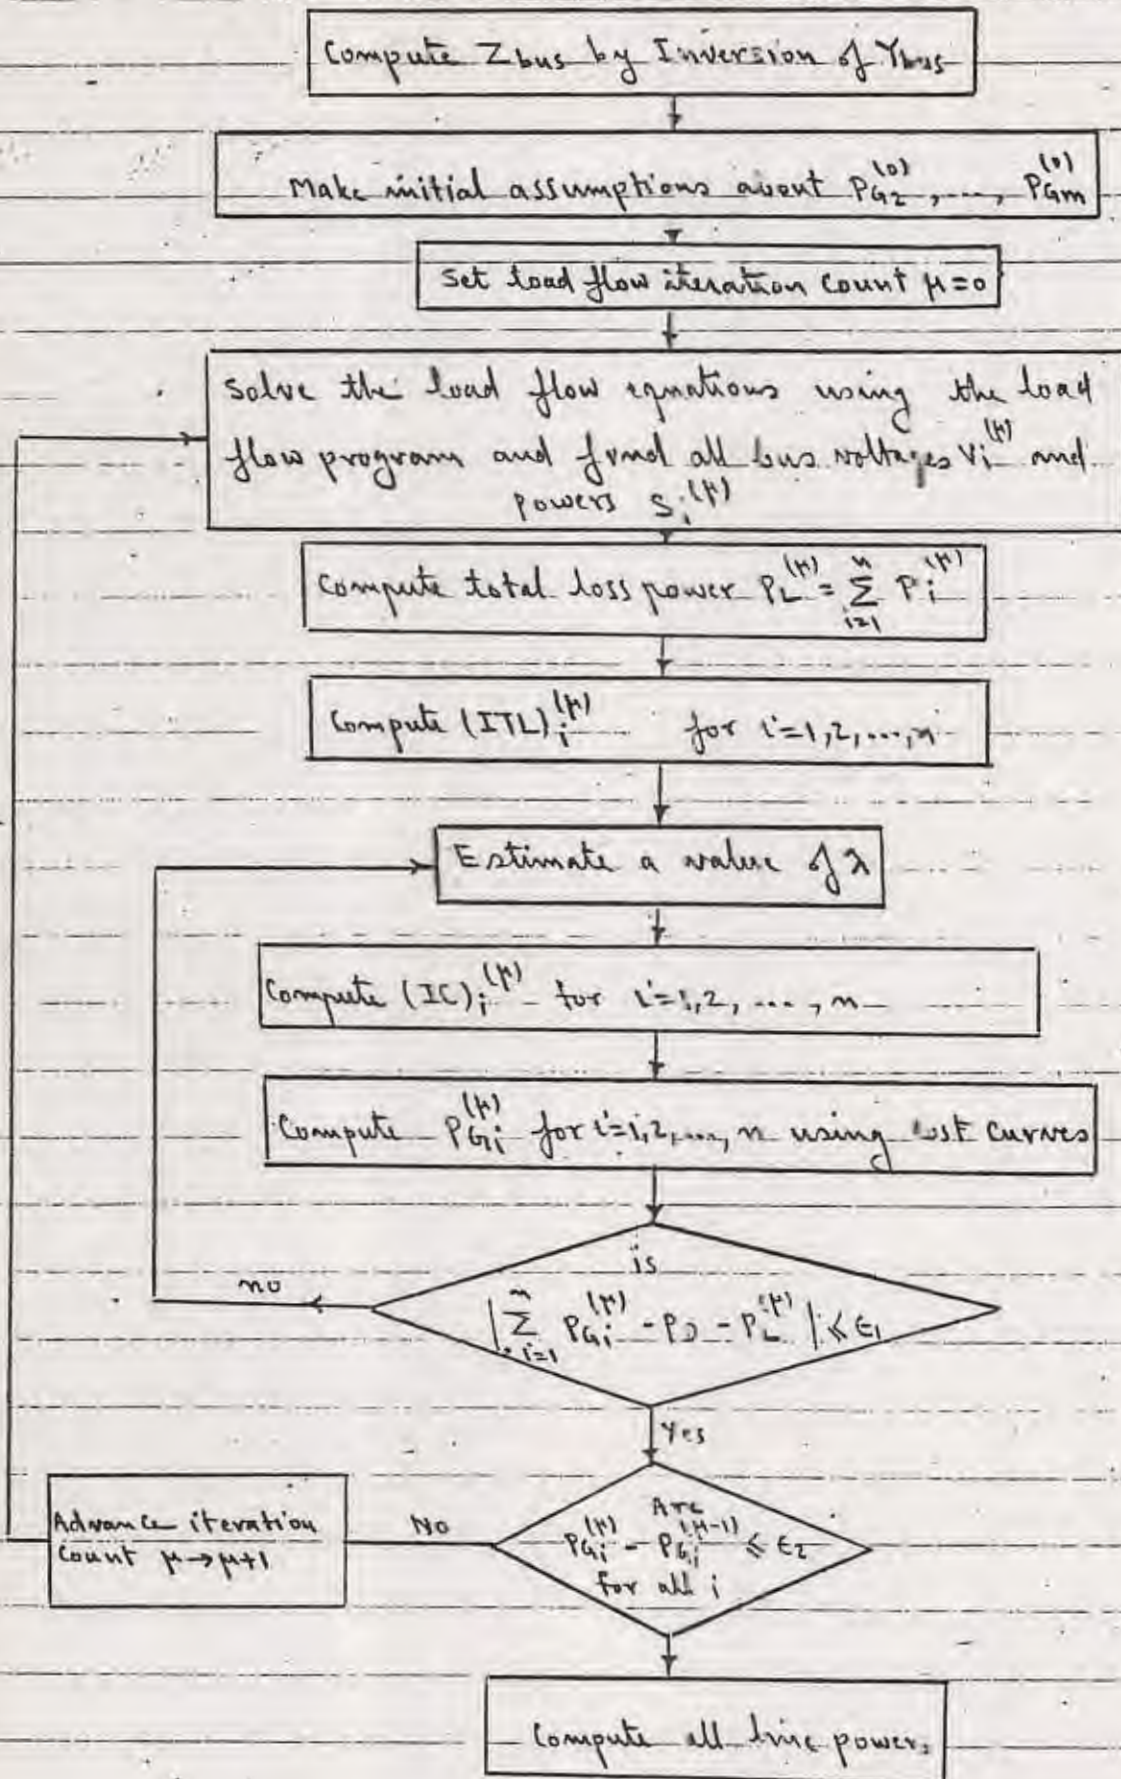 Compute Zbus by Inversion of Ybus
Make initial assumptions about P_G2^(0), ..., P_Gm^(0)
Set load flow iteration count μ=0
Solve the load flow equations using the load
flow program and find all bus voltages V_i^(μ) and
powers S_i^(μ)
Compute total loss power P_L^(μ) = Σ_{i=1}^{n} P_i^(μ)
Compute (ITL)_i^(μ) for i=1,2,...,n
Estimate a value of λ
Compute (IC)_i^(μ) for i=1,2, ..., n
Compute P_Gi^(μ) for i=1,2,...,n using cost curves
is
no
|Σ_{i=1}^{n} P_Gi^(μ) - P_D - P_L^(μ)| ≤ ε1
Yes
Are
Advance iteration
No
P_Gi^(μ) - P_Gi^(μ-1) ≤ ε2
count μ→μ+1
for all i
Compute all line powers